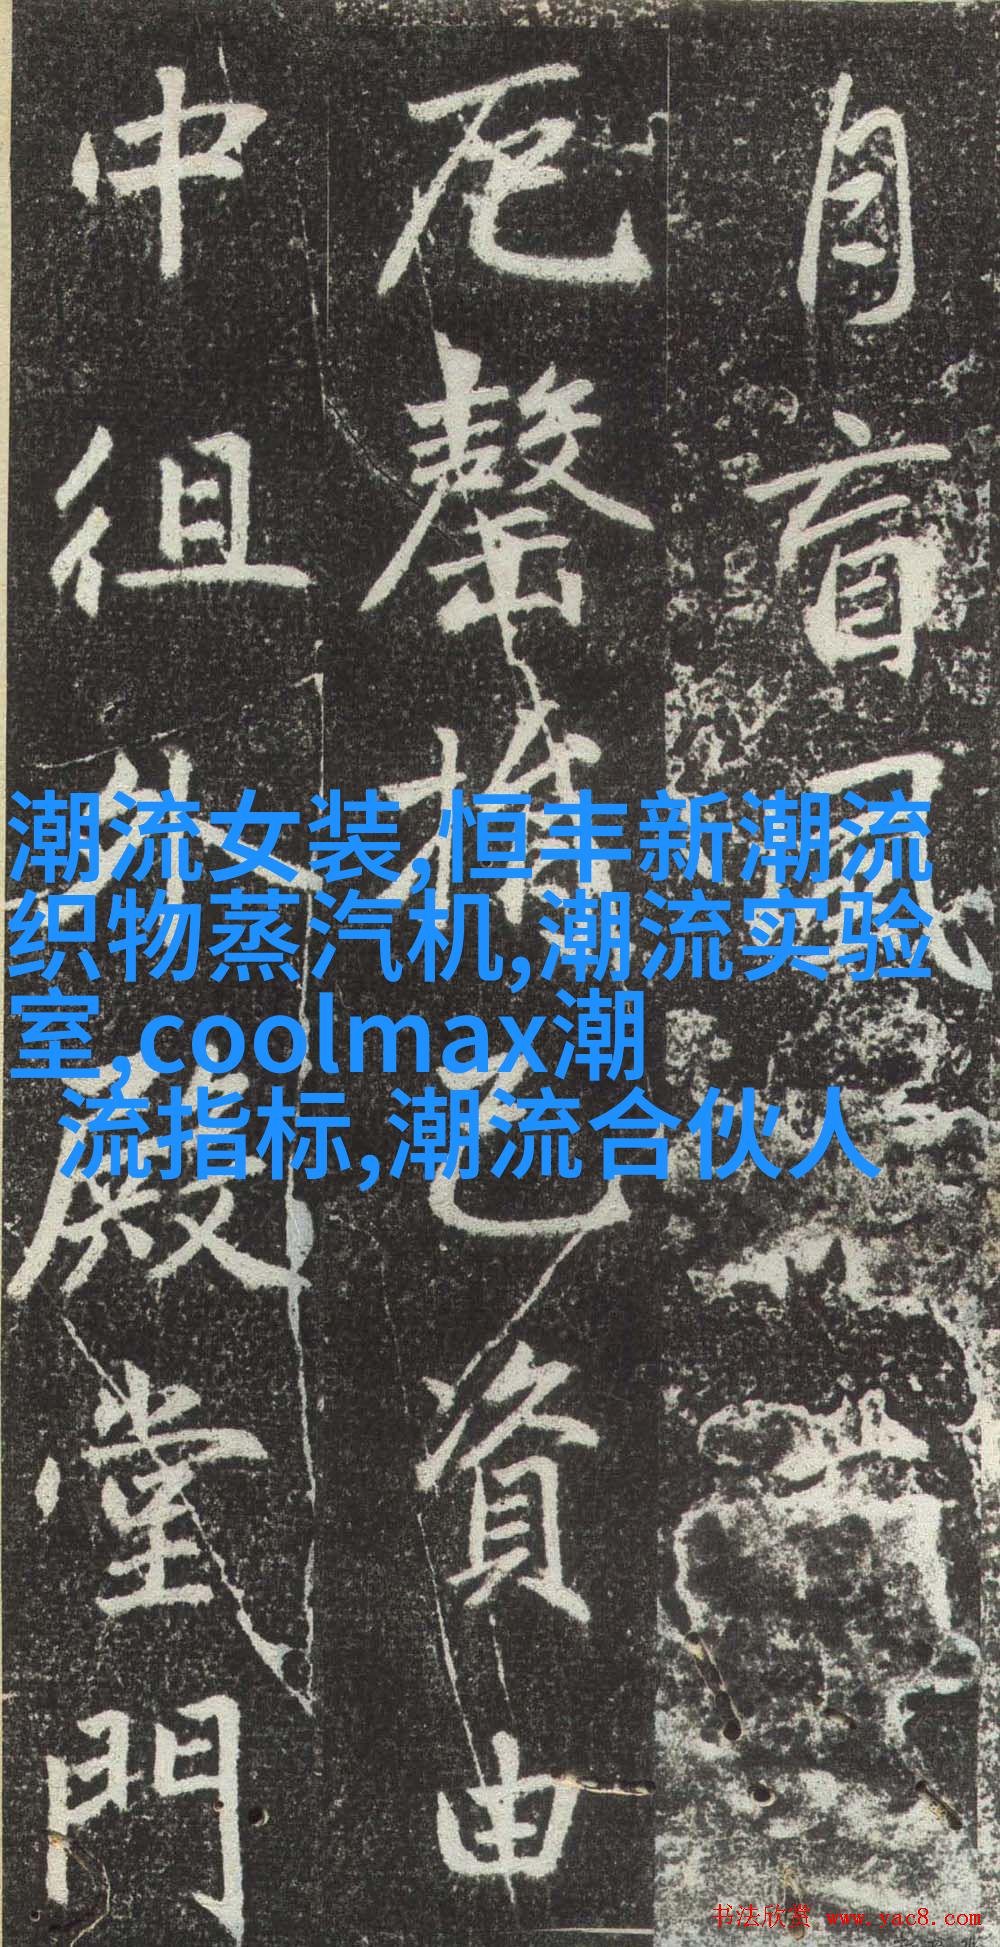 自盲風
厄罄櫛乙資由
中徂外殿堂門
潮流女装,恒丰新潮流
织物蒸汽机,潮流实验
室,coolmax潮
流指标,潮流合伙人
书法欣赏 www.yac8.com